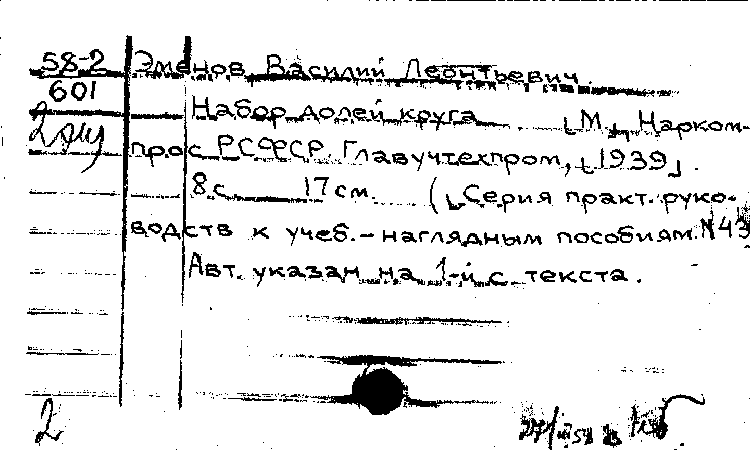 58-2
601
2 экз
Эменов Василий Леонтьевич.
Набор долей круга [М], Нарком-
прос РСФСР. Главучтехпром, [1939].
8 с. 17 см. ([Серия практ. руко-
водств к учеб.-наглядным пособиям. № 43
Авт. указан на 1-й с текста.
2